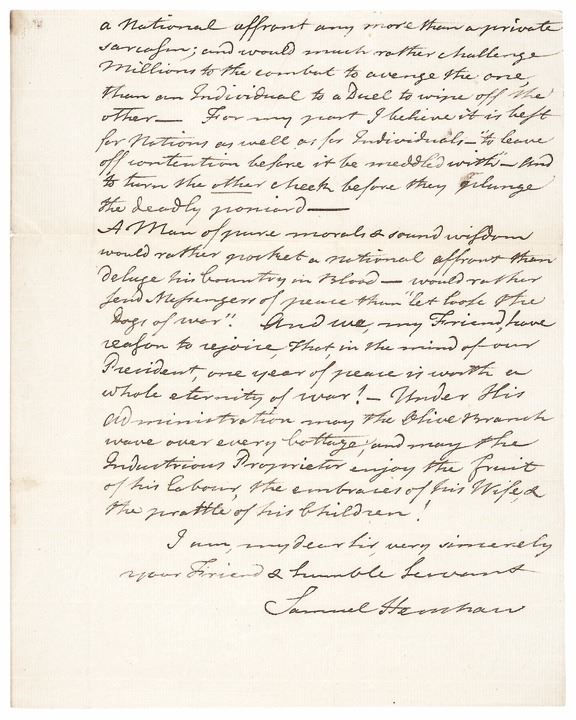 a National affront any more than a private
sarcasm; and would much rather challenge
Millions to the combat to avenge the one,
than an Individual to a Duel to wipe off the
other— For my part I believe it is best
for Nations as well as for Individuals—"to leave
off contention before it be meddled with"— And
to turn the other cheek before they plunge
the deadly poniard—
A Man of pure morals & sound wisdom
would rather pocket a national affront than
deluge his Country in Blood— would rather
send Messengers of peace than "let loose the
Dogs of war". And we, my Friend, have
reason to rejoice, That, in the mind of our
President, one year of peace is worth a
whole eternity of war!— Under His
administration may the Olive Branch
wave over every Cottage; and may the
Industrious Proprietor enjoy the fruit
of his labour, the embraces of his Wife, &
the prattle of his Children!
I am, my dear Sir, very sincerely
your Friend & humble Servant
Samuel Henshaw